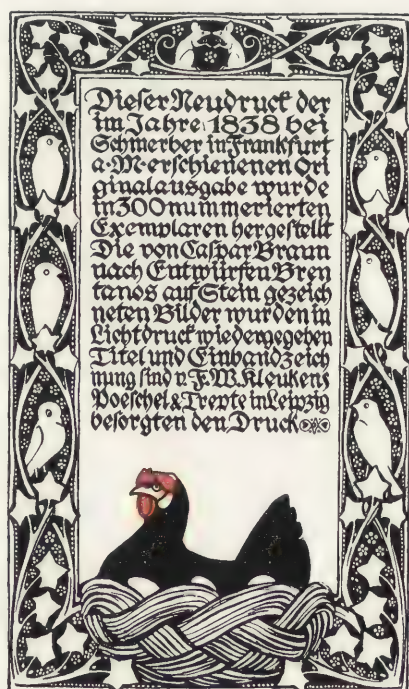 Dieser Neudruck der
im Jahre 1838 bei
Schmerber in Frankfurt
a·M·erschienenen Ori
ginalausgabe wurde
in 300 nummerierten
Exemplaren hergestellt
Die von Caspar Braun
nach Entwürfen Bren
tanos auf Stein gezeich
neten Bilder wurden in
Lichtdruck wiedergegeben
Titel und Einbandzeich
nung sind v. F.W. Kleukens
Poeschel & Trepte in Leipzig
besorgten den Druck